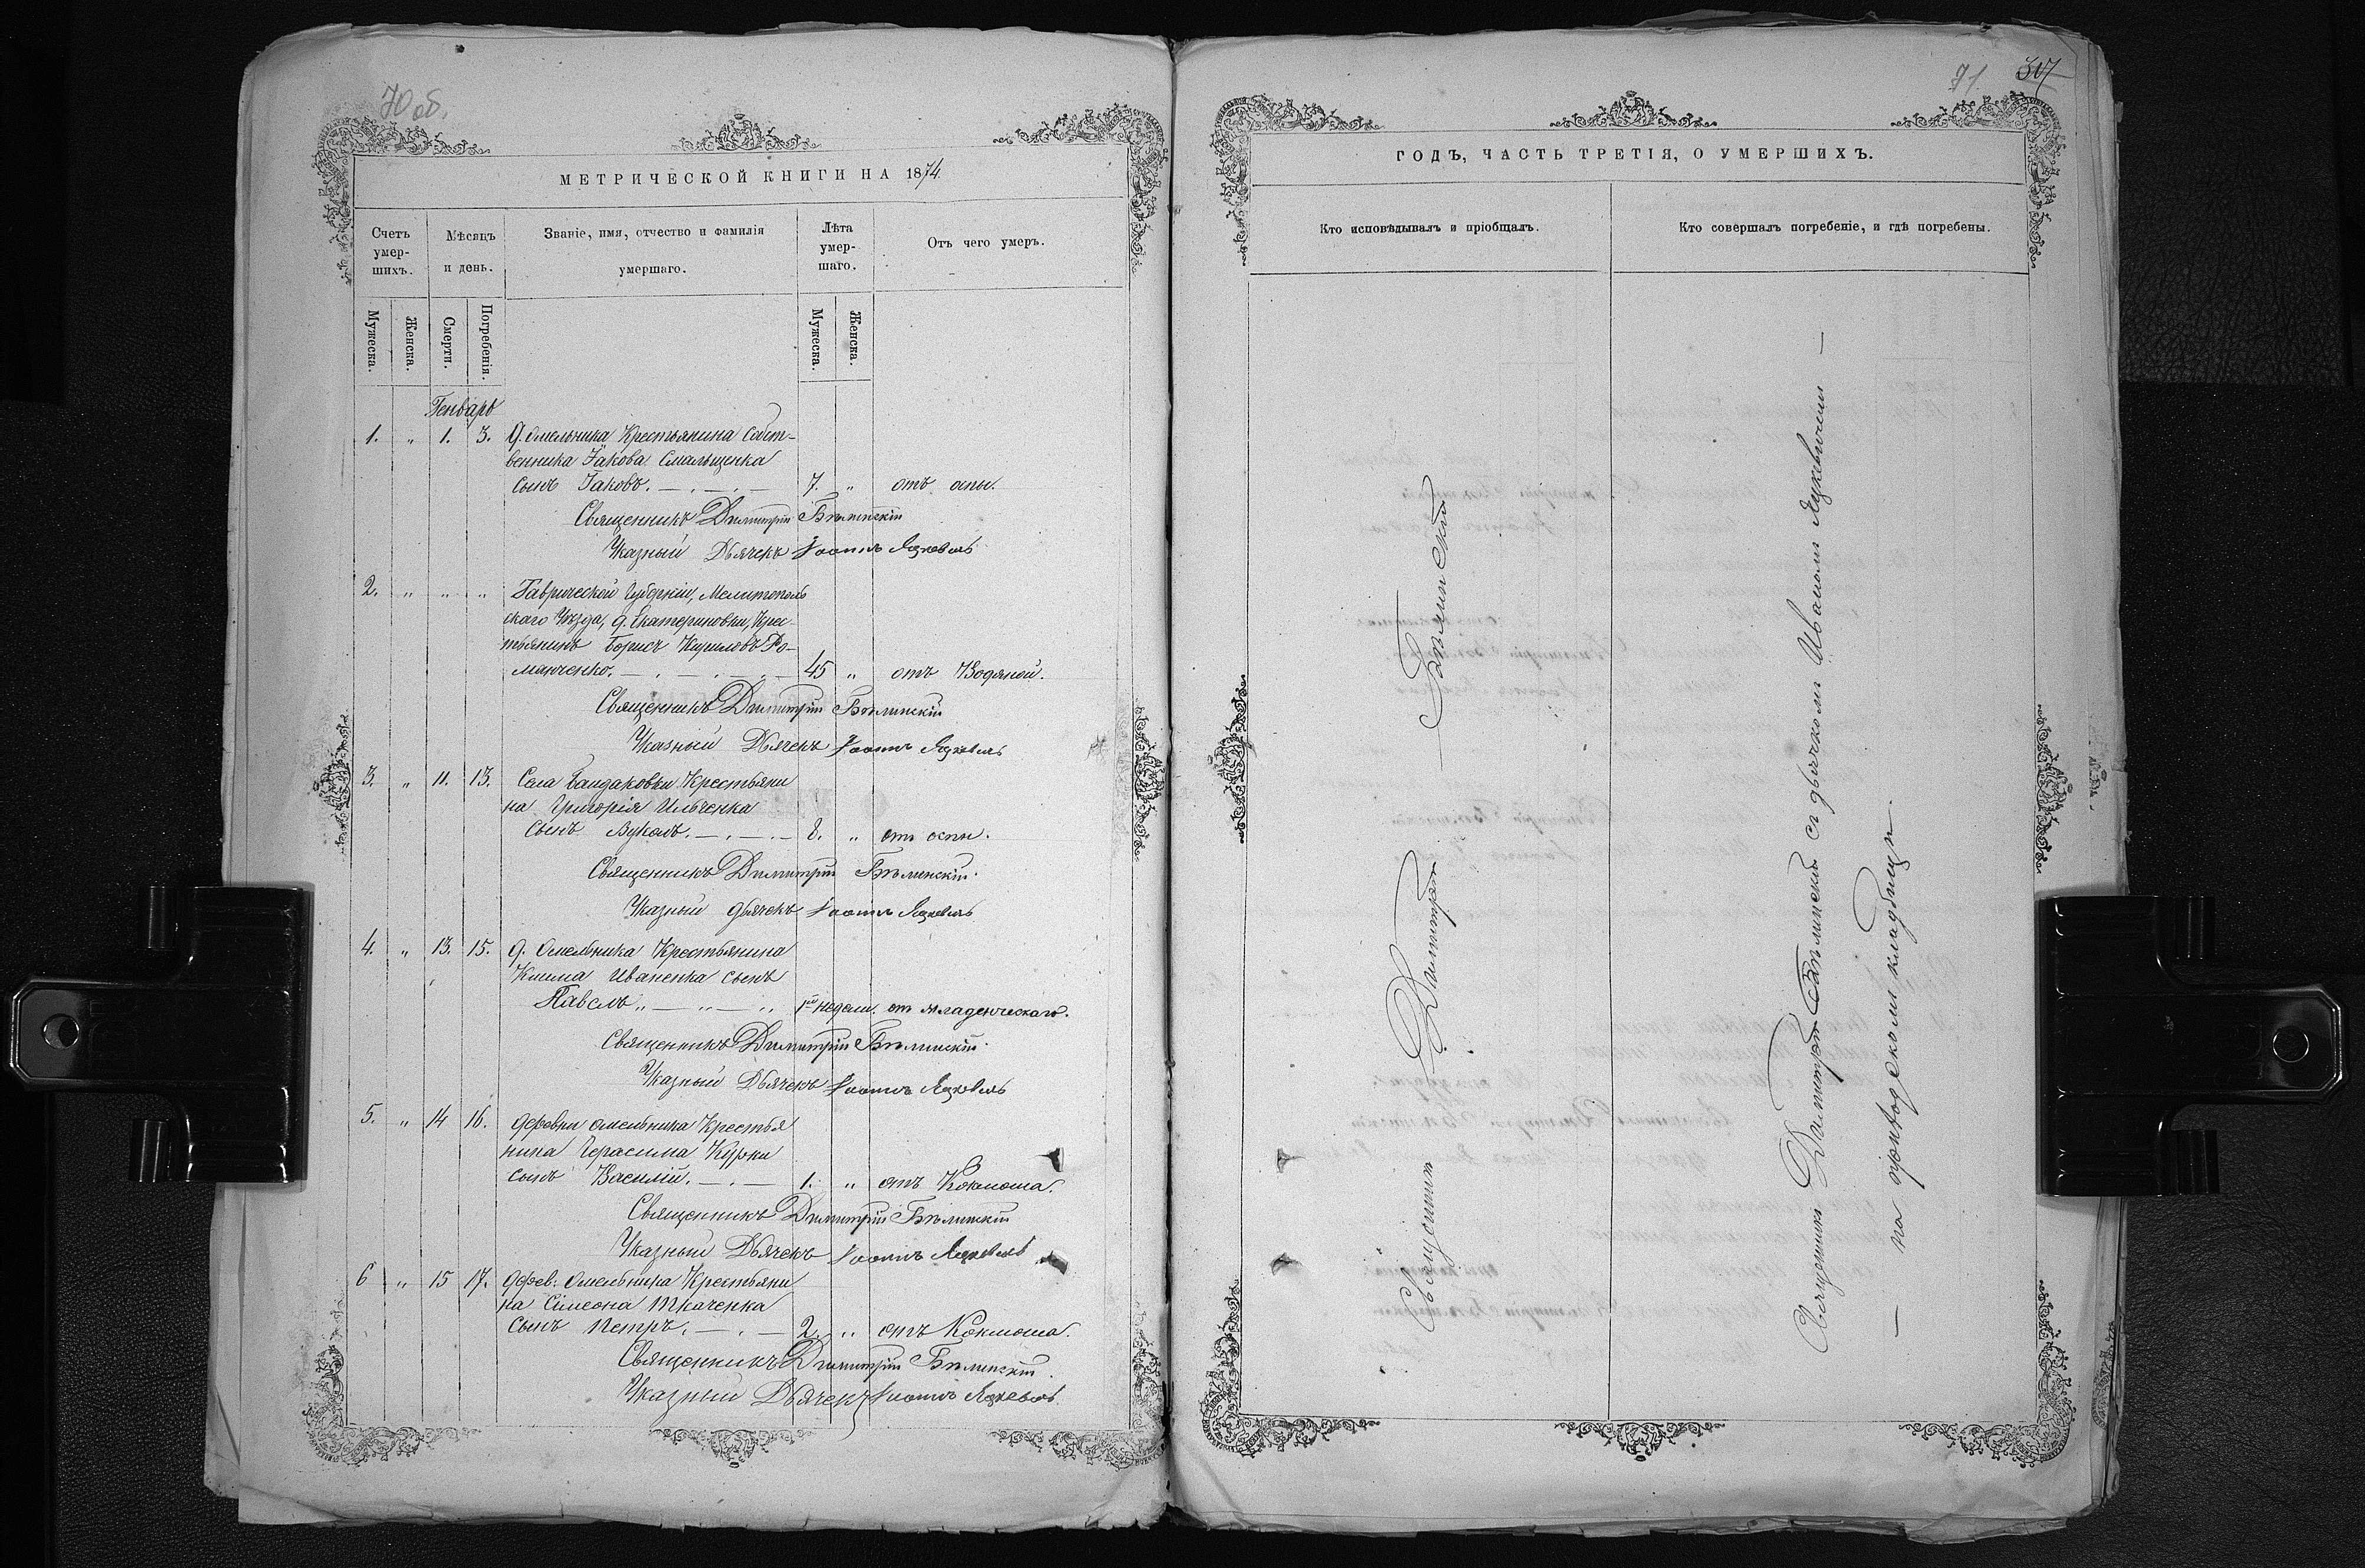 70 об.
МЕТРИЧЕСКОЙ КНИГИ НА 1874.
Счетъ умер-шихъ.
Мѣсяцъ и день.
Званіе, имя, отчество и фамилія умершаго.
Лѣта умер-шаго.
Отъ чего умеръ.
Мужеска.
Женска.
Смерти.
Погребенія.
Мужеска.
Женска.
Генварь
1. „ 1. 3. Д. Омельника Крестьянина Собст-
венника Іакова Смальщенка
сынъ Іаковъ. 7. „ отъ оспы.
Священникъ Димитрій Бѣлинскій
Указный Дьячекъ Іоаннъ Яцкевичъ
2. „ „ „ Таврической Губерніи, Мелитополь
скаго Уѣзда, д. Екатериновки, Крес-
тьянинъ Борисъ Кириловъ Ро-
манченко. 45 „ отъ Водяной.
Священникъ Димитрій Бѣлинскій
Указный Дьячекъ Іоаннъ Яцкевичъ
3. „ 11. 13. Села Бандаковки Крестьяни
на Григорія Ильченка
сынъ Лукавъ. 8. „ отъ оспы.
Священникъ Димитрій Бѣлинскій.
Указный дьячекъ Іоаннъ Яцкевичъ
4. „ 13. 15. д. Омельника Крестьянина
Клима Иваненка сынъ
Павелъ „ 1й недели. отъ младенческаго.
Священникъ Димитрій Бѣлинскій.
Указный Дьячекъ Іоаннъ Яцкевичъ
5. „ 14 16. деревни Омельника Крестья
нина Герасима Курки
сынъ Василій. 1. „ отъ Коклюша.
Священникъ Димитрій Бѣлинскій
Указный Дьячекъ Іоаннъ Яцкевичъ
6 „ 15 17. дерев: Омельника Крестьяни
на Симеона Ткаченка
сынъ Петръ. 2. „ отъ Коклюша.
Священникъ Димитрій Бѣлинскій.
Указный Дьячекъ Іоаннъ Яцкевичъ
71 307
ГОДЪ, ЧАСТЬ ТРЕТІЯ, О УМЕРШИХЪ.
Кто исповѣдывалъ и пріобщалъ.
Кто совершалъ погребеніе, и гдѣ погребены.
Священникъ Димитрій Бѣлинскій
Священникъ Димитрій Бѣлинскій съ дьячкомъ Иваномъ Яцкевичемъ —
— на приходскомъ кладбищѣ.